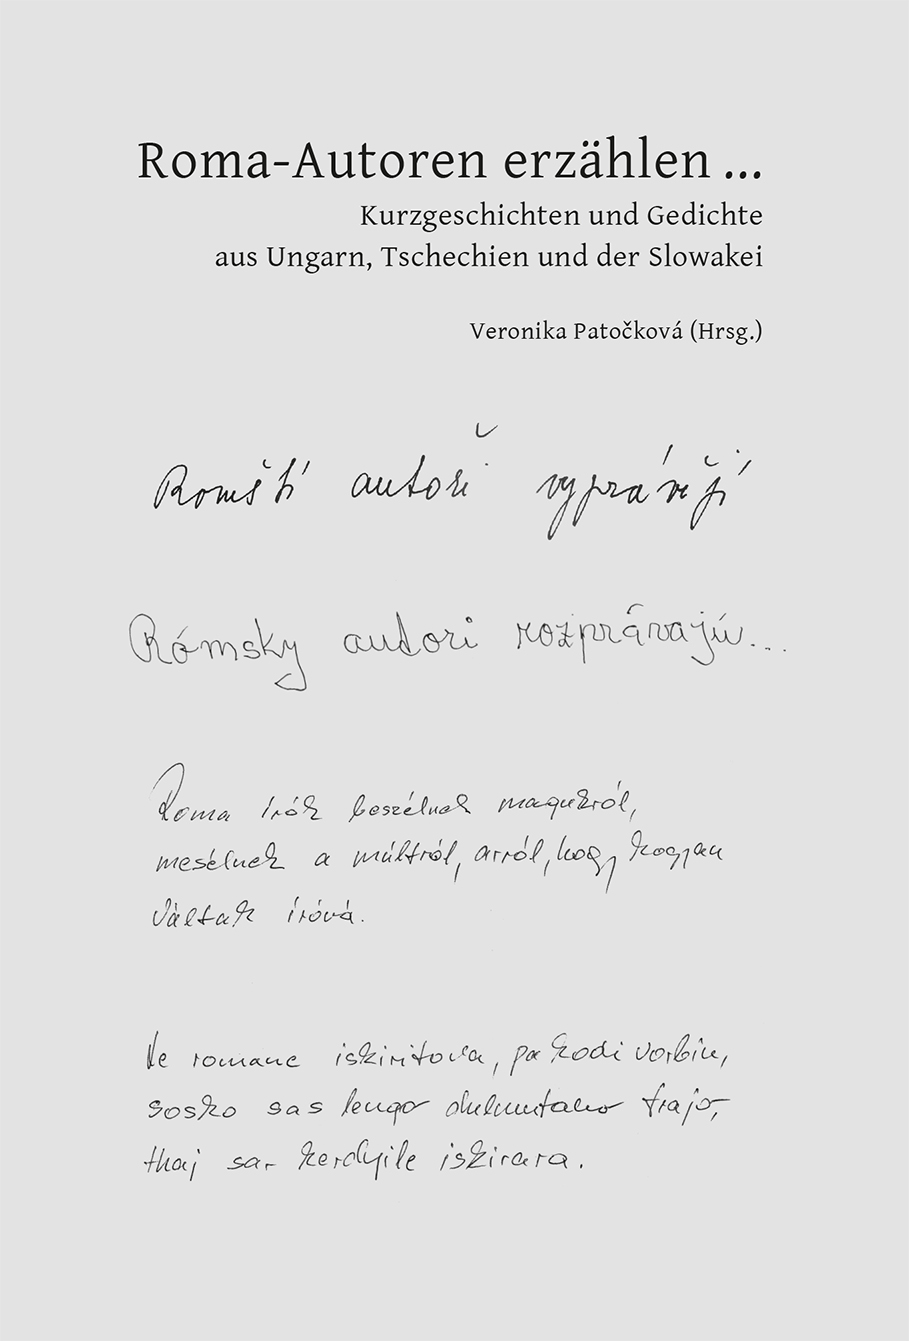 Roma-Autoren erzählen ...
Kurzgeschichten und Gedichte
aus Ungarn, Tschechien und der Slowakei
Veronika Patočková (Hrsg.)
Romští autoři vyprávějí
Rómsky autori rozprávajú...
Roma írók beszélnek magukról,
mesélnek a múltról, arról, hogy hogyan
váltak íróvá.
Le romane iskiritova, pa kodi vorbin,
sosko sas lengo dulmutano trajo,
thaj sar kerdyile iskirara.